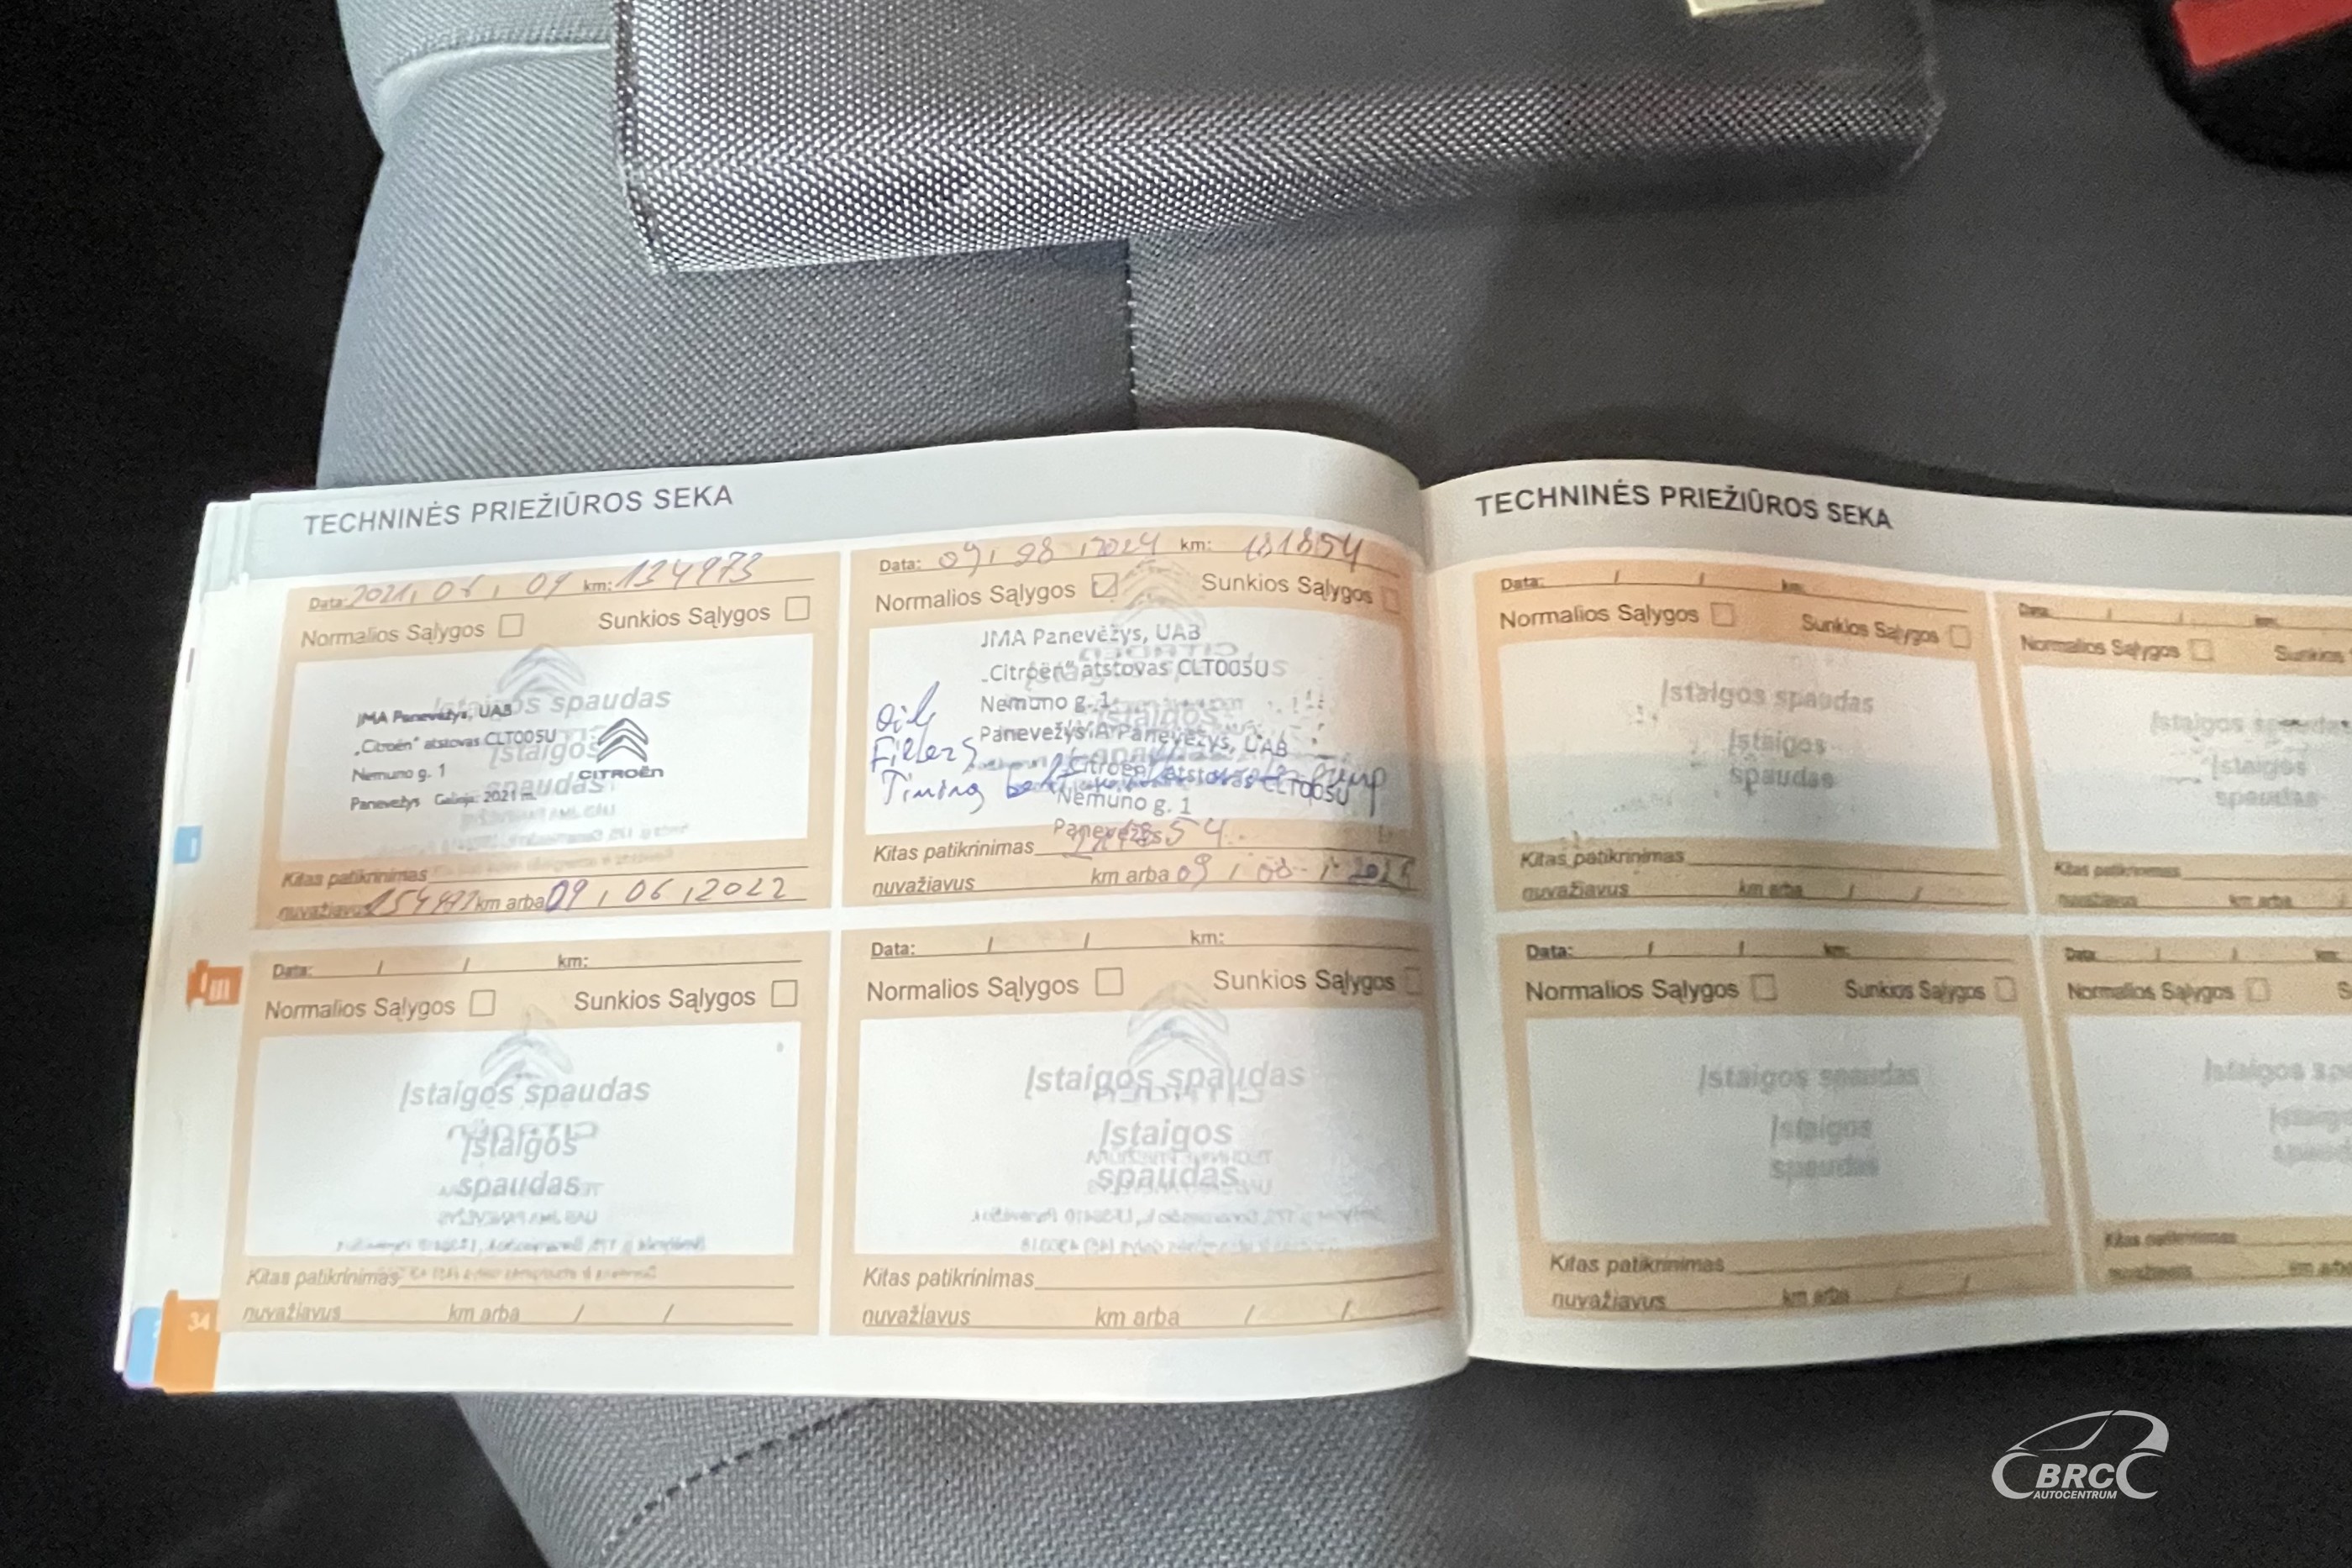 TECHNINĖS PRIEŽIŪROS SEKA
Data: 2021, 06, 09 km: 134973
Normalios Sąlygos Sunkios Sąlygos
Įstaigos spaudas
Įstaigos
spaudas
JMA Panevėžys, UAB
„Citroën“ atstovas CLT005U
Nemuno g. 1
Panevėžys Galioja: 2021 m.
CITROËN
Kitas patikrinimas
nuvažiavus km arba 09, 06, 2022
Data: 09, 08, 2024 km: 181854
Normalios Sąlygos Sunkios Sąlygos
JMA Panevėžys, UAB
„Citroën“ atstovas CLT005U
Nemuno g. 1
Panevėžys
Panevėžys, UAB
Citroën atstovas CLT005U
Nemuno g. 1
Panevėžys
Oil
Filters
Timing belt pump
Kitas patikrinimas
nuvažiavus km arba 09 / 08 /
Data: / / km:
Normalios Sąlygos Sunkios Sąlygos
Įstaigos spaudas
Įstaigos
spaudas
Kitas patikrinimas
nuvažiavus km arba / /
Data: / / km:
Normalios Sąlygos Sunkios Sąlygos
Įstaigos spaudas
Įstaigos
spaudas
Kitas patikrinimas
nuvažiavus km arba / /
34
TECHNINĖS PRIEŽIŪROS SEKA
Data: / / km:
Normalios Sąlygos Sunkios Sąlygos
Įstaigos spaudas
Įstaigos
spaudas
Kitas patikrinimas
nuvažiavus km arba / /
Data: / / km:
Normalios Sąlygos Sunkios
Įstaigos spaudas
Įstaigos
spaudas
Kitas patikrinimas
nuvažiavus km arba /
Data: / / km:
Normalios Sąlygos Sunkios Sąlygos
Įstaigos spaudas
Įstaigos
spaudas
Kitas patikrinimas
nuvažiavus km arba / /
Data: / / km:
Normalios Sąlygos
Kitas patikrinimas
nuvažiavus km arba
BRC
AUTOCENTRUM